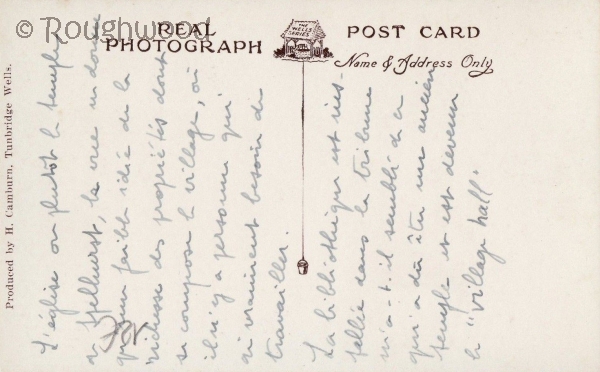 © Roughwood
REAL PHOTOGRAPH
THE WELLS SERIES
POST CARD
Name & Address Only
Produced by H. Camburn, Tunbridge Wells.
L'église ou plutôt le temple
de Speldhurst, la vue en donne
qu'une faible idée de la
richesse des propriétés dont
se compose le village, où
il n'y a personne qui
ai vraiment besoin de
travailler.
La bibliothèque est ins-
tallée dans la tribune
m'a-t-il semblé de ce
qui a dû être un ancien
temple et est devenu
le "village hall".